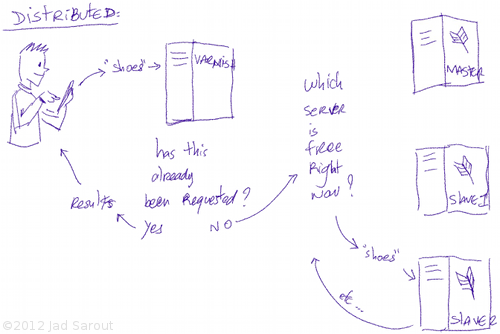 DISTRIBUTED:
"shoes"
VARNISH
has this
already
been Requested?
Yes
NO
Results
which
SERVER
is
free
Right
Now?
"shoes"
etc...
MASTER
SLAVE 1
SLAVE R
©2012 Jad Sarout